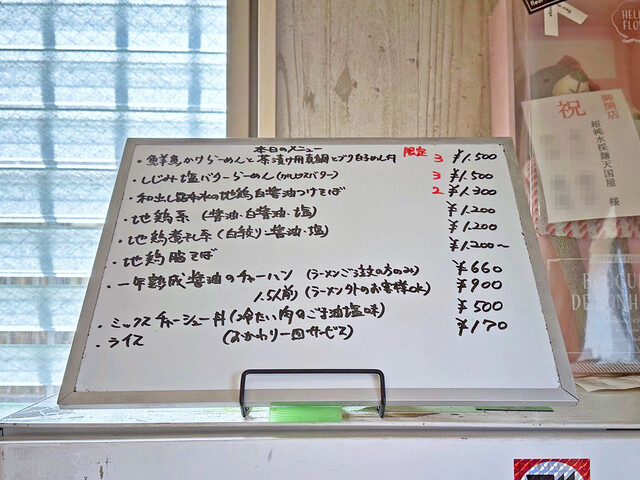 本日のメニュー
・鮮魚かけらーめんと茶漬け用真鯛とブリ白子めし付 限定 3 ¥1.500
・しじみ塩バターらーめん(カルピスバター) 3 ¥1.500
・和出し昆布水の地鶏白醤油つけそば 2 ¥1.300
・地鶏系 (醤油・白醤油・塩) ¥1.200
・地鶏煮干し系 (白絞り醤油・塩) ¥1.200
・地鶏脂そば ¥1.200〜
・一年熟成醤油のチャーハン (ラーメンご注文の方のみ) ¥660
1.5人前 (ラーメン外のお客様OK) ¥900
・ミックスチャーシュー丼 (冷たい肉のごま油塩味) ¥500
・ライス (おかわり一回サービス) ¥170
御開店
祝
超純水採麺天国屋 様
HELLO